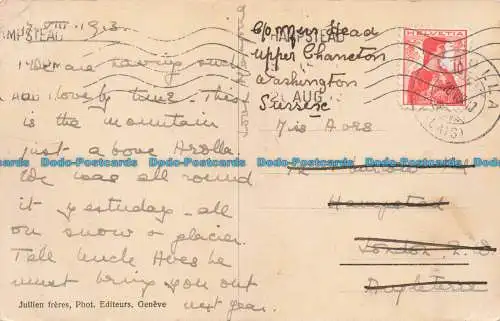 VIII. 1913.
HAMPSTEAD
We are having such
a lovely time. This
is the mountain
just above Arolla
We was all round
it yesterday - all
on snow & glacier.
Tell Uncle
must bring you out
next year.
Jullien frères, Phot. Editeurs, Genève
C/o Mrs Head
Upper Chancton
Washington
AUG
Sussex
HELVETIA
Hampstead
London
Angleterre
Dodo-Postcards Dodo-Postcards Dodo-Postcards Dodo-Postcards Dodo-Postcards